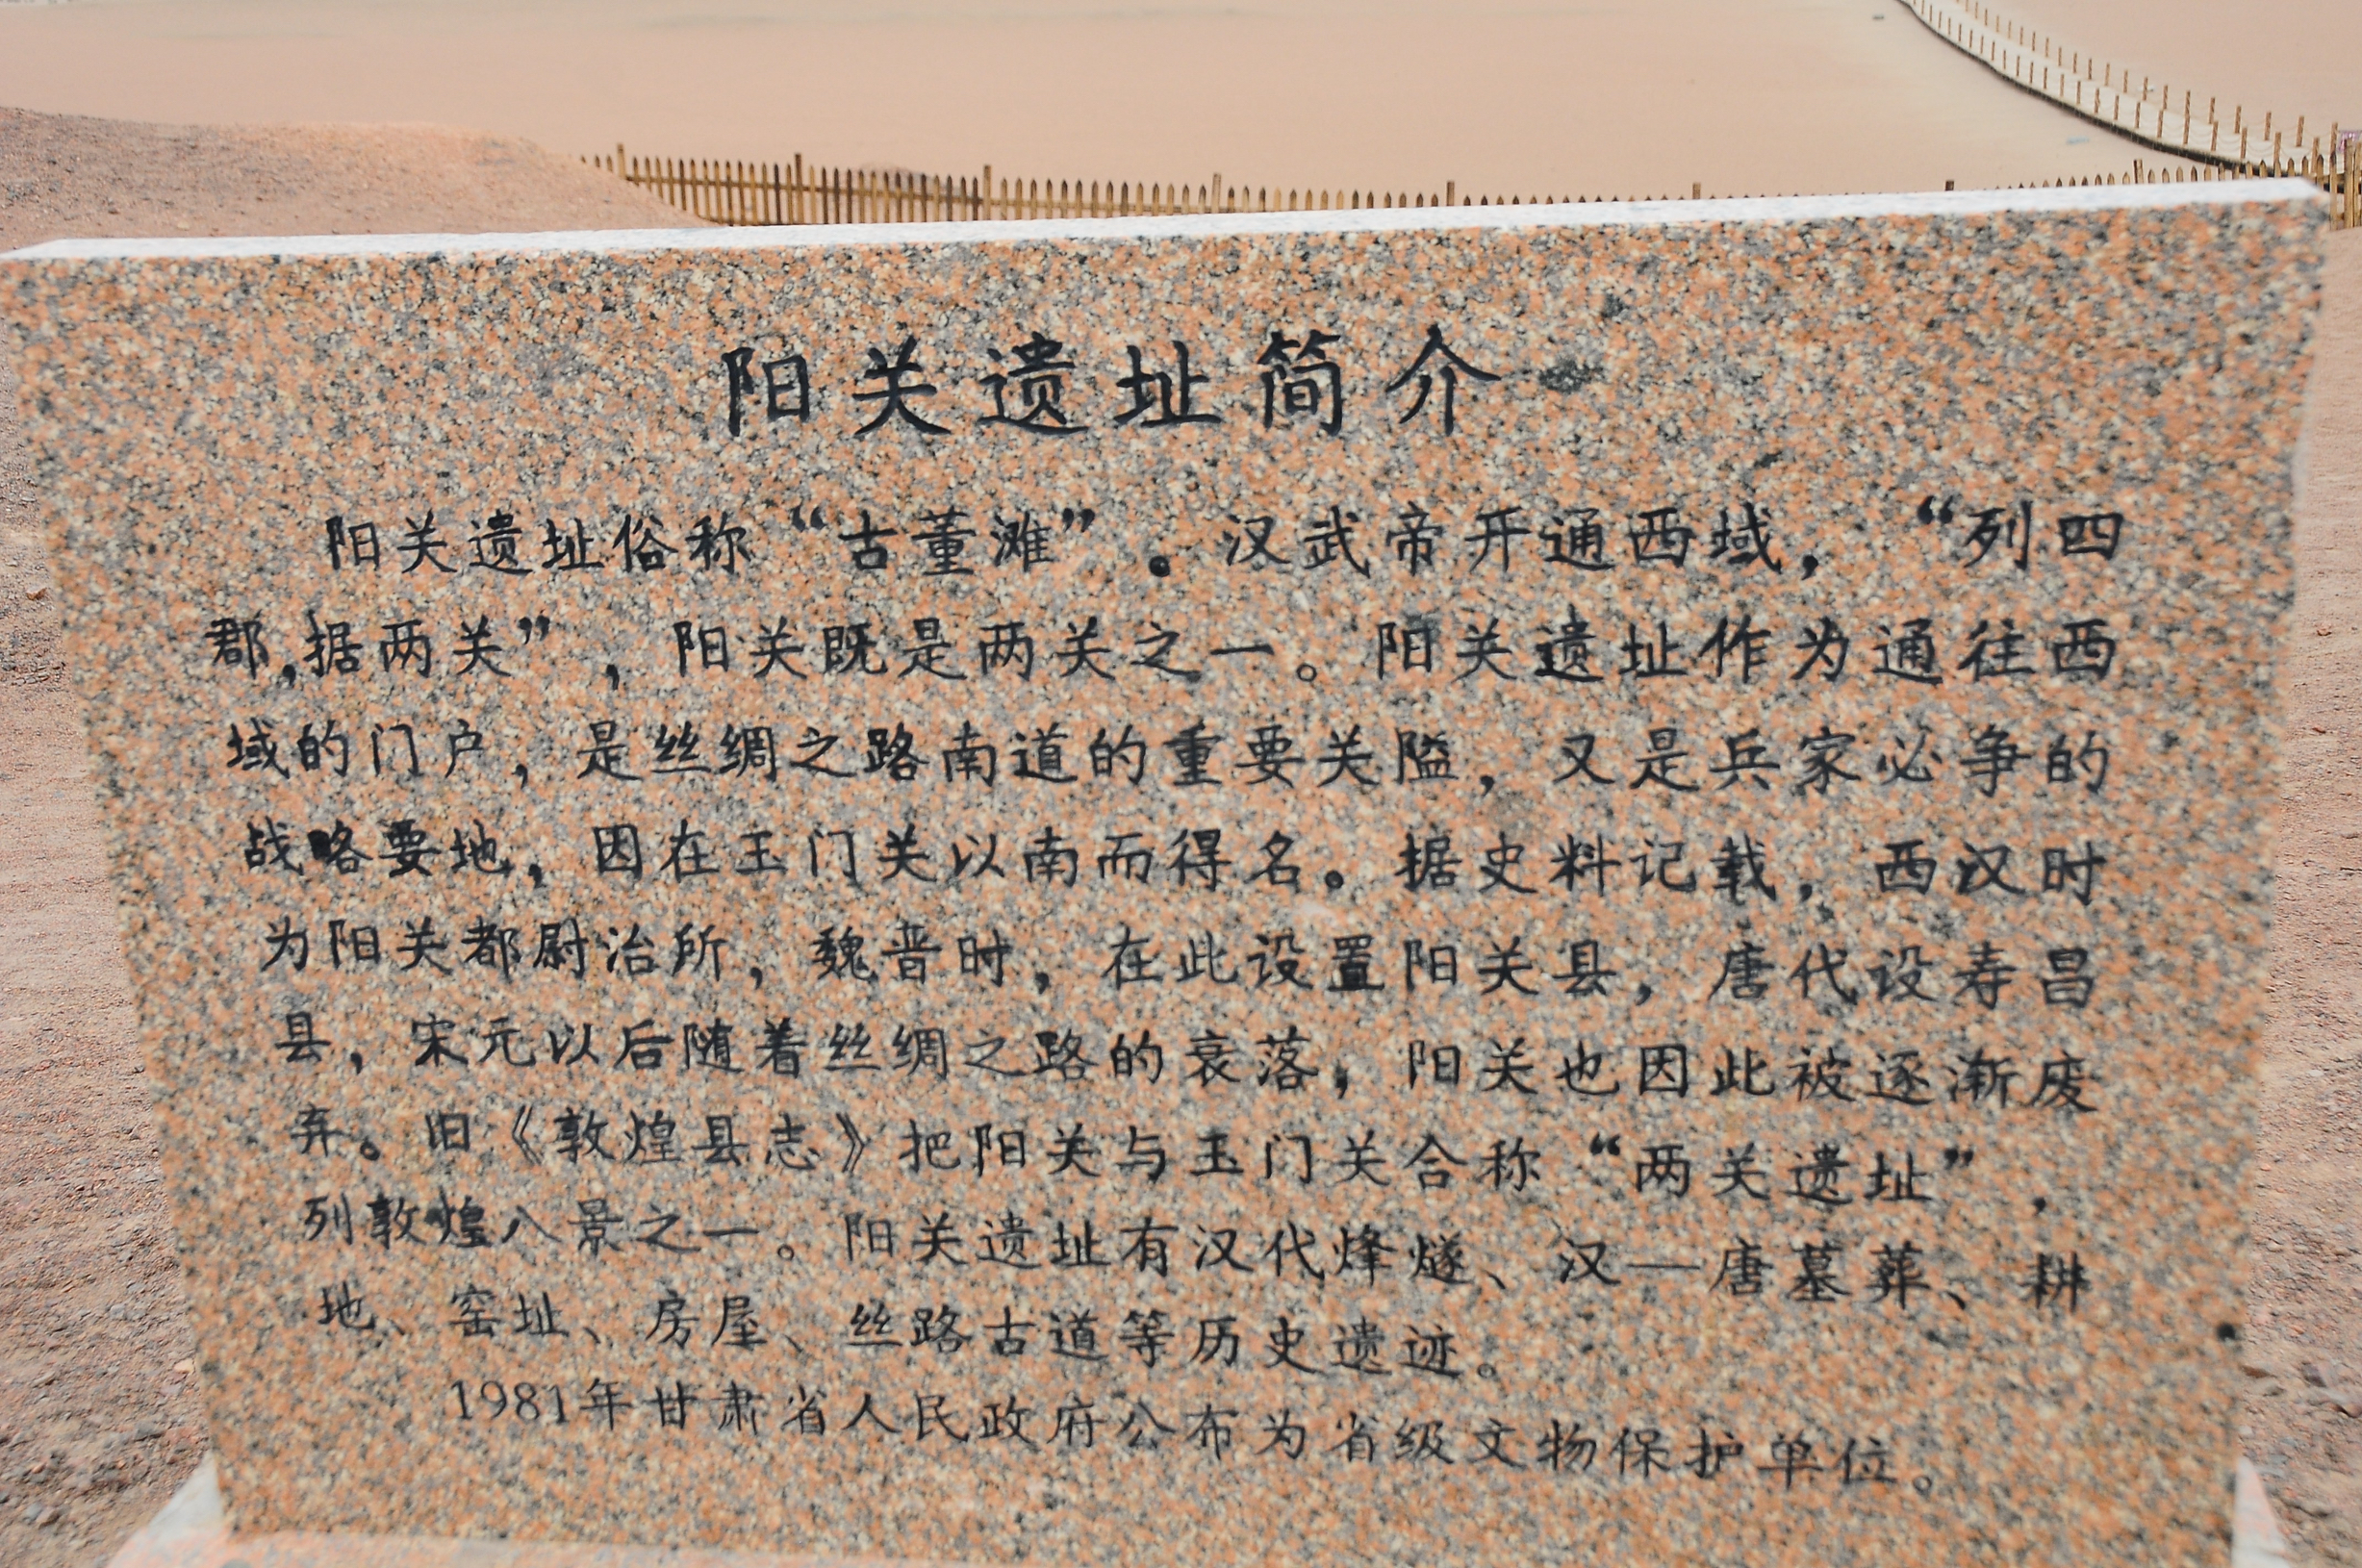 阳关遗址简介
阳关遗址俗称“古董滩”。汉武帝开通西域，“列四
郡,据两关”，阳关既是两关之一。阳关遗址作为通往西
域的门户，是丝绸之路南道的重要关隘，又是兵家必争的
战略要地，因在玉门关以南而得名。据史料记载，西汉时
为阳关都尉治所，魏晋时，在此设置阳关县，唐代设寿昌
县，宋元以后随着丝绸之路的衰落，阳关也因此被逐渐废
弃。旧《敦煌县志》把阳关与玉门关合称“两关遗址”，
列敦煌八景之一。阳关遗址有汉代烽燧、汉—唐墓葬、耕
地、窑址、房屋、丝路古道等历史遗迹。
1981年甘肃省人民政府公布为省级文物保护单位。